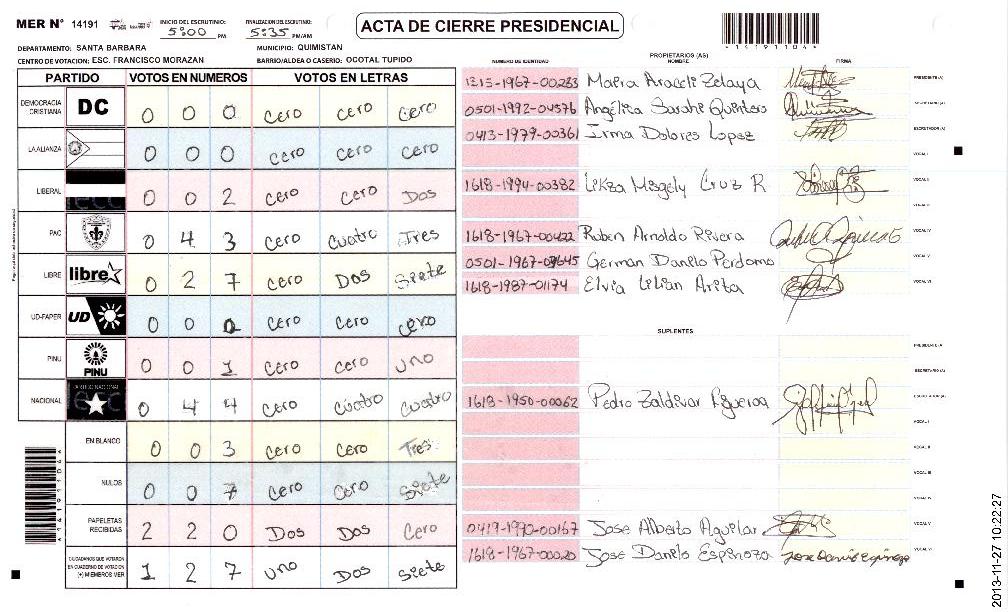 MER N° 14191
INICIO DEL ESCRUTINIO: 5:00 PM
FINALIZACION DEL ESCRUTINIO: 5:35 PM/AM
ACTA DE CIERRE PRESIDENCIAL
14191104
DEPARTAMENTO: SANTA BARBARA MUNICIPIO: QUIMISTAN
CENTRO DE VOTACION: ESC. FRANCISCO MORAZAN BARRIO/ALDEA O CASERIO: OCOTAL TUPIDO
PARTIDO VOTOS EN NUMEROS VOTOS EN LETRAS
DEMOCRACIA CRISTIANA DC 0 0 0 Cero Cero Cero
LA ALIANZA 0 0 0 Cero Cero Cero
LIBERAL 0 0 2 Cero Cero Dos
PAC 0 4 3 Cero Cuatro Tres
LIBRE libre 0 2 7 Cero Dos Siete
UD-FAPER UD 0 0 0 Cero Cero Cero
PINU PINU 0 0 1 Cero Cero Uno
NACIONAL PARTIDO NACIONAL 0 4 4 Cero Cuatro Cuatro
EN BLANCO 0 0 3 Cero Cero Tres
NULOS 0 0 7 Cero Cero Siete
PAPELETAS RECIBIDAS 2 2 0 Dos Dos Cero
CIUDADANOS QUE VOTARON EN CUADERNO DE VOTACION (+) MIEMBROS MER 1 2 7 Uno Dos Siete
PROPIETARIOS (AS)
NUMERO DE IDENTIDAD NOMBRE FIRMA
1315-1967-00233 Maira Araceli Zelaya PRESIDENTE (A)
0501-1992-04576 Angélica Sarahi Quintero SECRETARIO (A)
0413-1979-00361 Irma Dolores Lopez ESCRUTADOR (A)
VOCAL I
1618-1994-00382 Cruz R VOCAL II
VOCAL III
1618-1967-00422 Ruben Arnoldo Rivera VOCAL IV
0501-1967-09645 German Danilo Perdomo VOCAL V
1618-1987-01174 Elvia Lilian Arita VOCAL VI
SUPLENTES
PRESIDENTE (A)
SECRETARIO (A)
1618-1950-00062 Pedro Zaldivar Figueroa ESCRUTADOR (A)
VOCAL I
VOCAL II
VOCAL III
VOCAL IV
0419-1990-00167 Jose Alberto Aguilar VOCAL V
1618-1967-00020 Jose Danilo Espinoza VOCAL VI
2013-11-27 10:22:27